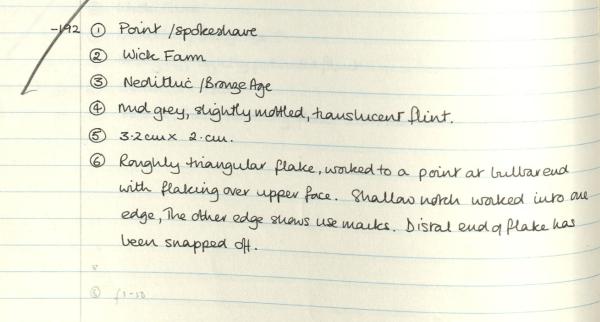 -192 ① Point /spokeshave
② Wick Farm
③ Neolithic /Bronze Age
④ Mid grey, slightly mottled, translucent flint.
⑤ 3.2cm x 2.cm.
⑥ Roughly triangular flake, worked to a point at bulbar end
with flaking over upper face. Shallow notch worked into one
edge, The other edge shows use marks. Distal end of flake has
been snapped off.